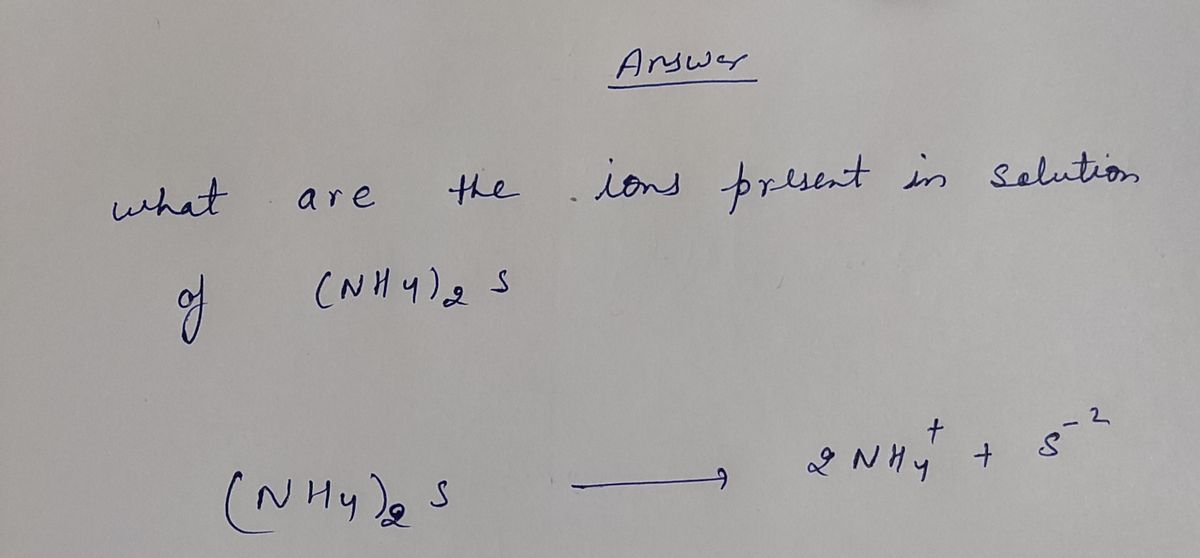 Answer
what are the ions present in solution
of (NH4)2 S
(NH4)2 S ⟶ 2 NH4⁺ + S⁻²